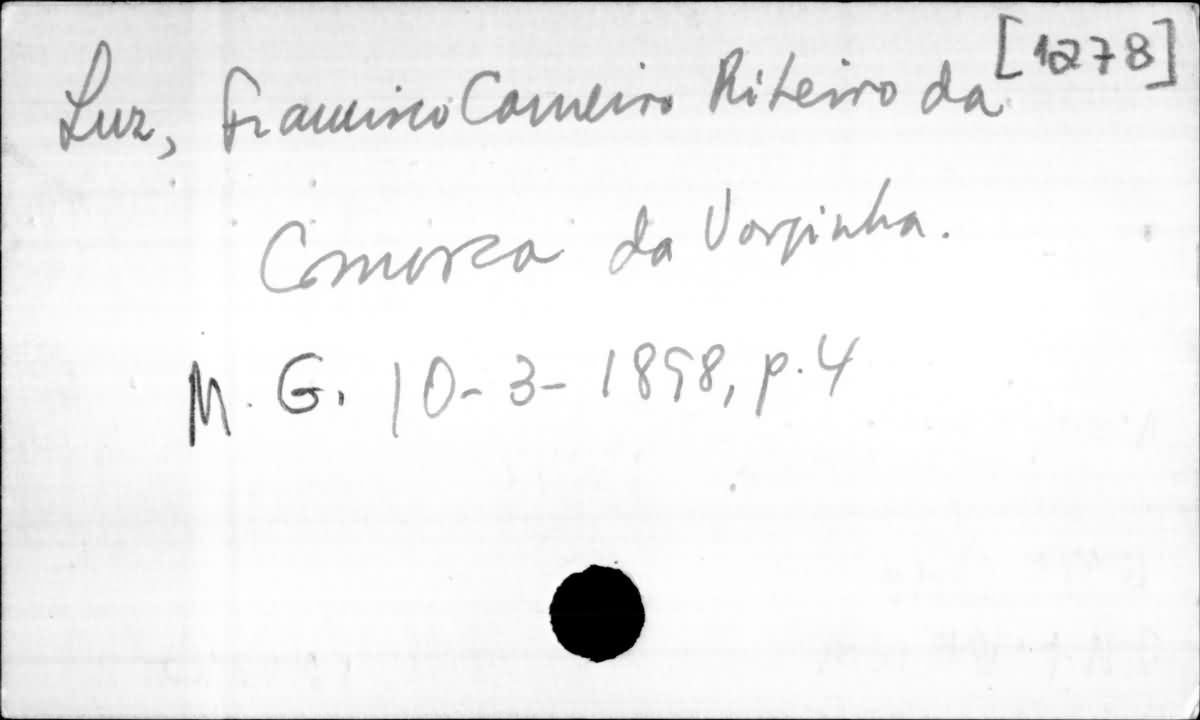 [1278]
Luz, Francisco Carneiro Ribeiro da
Comarca da Varginha.
M. G. 10-3-1898, p. 4